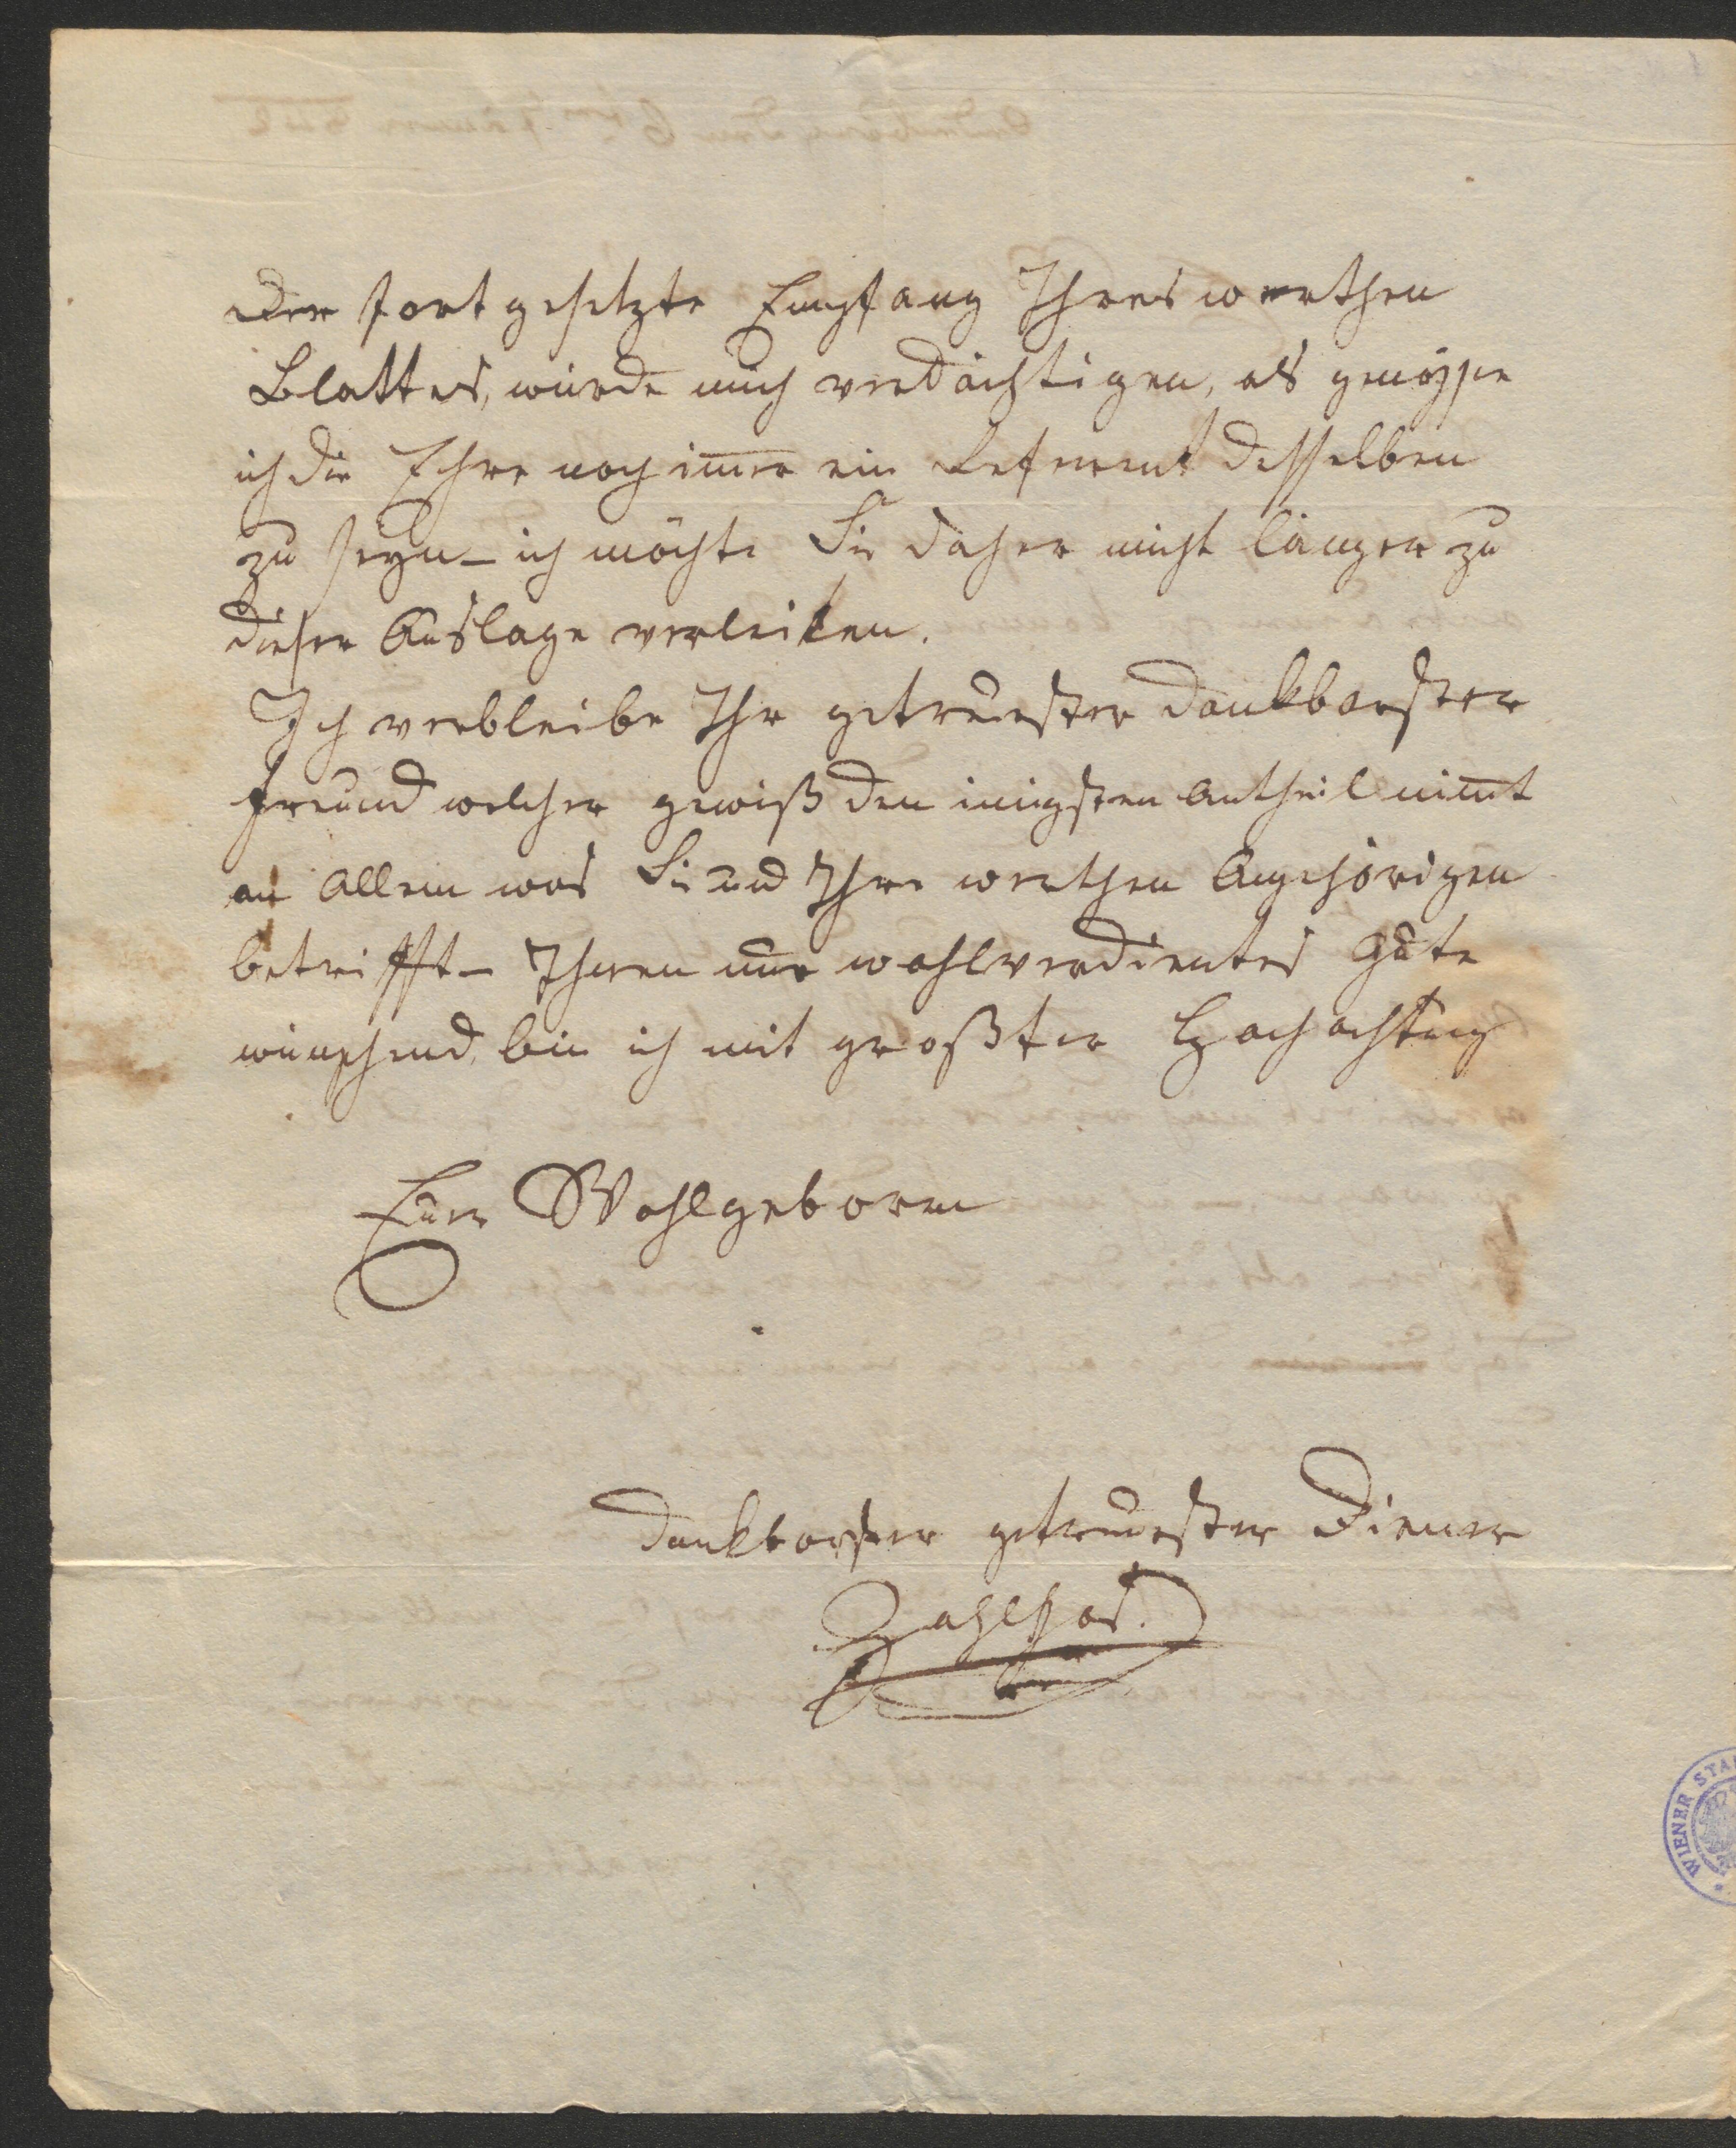 Der fortgesetzte Empfang Ihres werthen
Blattes, würde mich verdächtigen, als genösse
ich die Ehre noch im̅er ein Referent desselben
zu seyn – ich möchte Sie daher nicht länger zu
dieser Auslage verleiten.
Ich verbleibe Ihr getreuester dankbarster
Freund welcher gewiß den innigsten Antheil nim̅t
an Allem was Sie und Ihre werthen Angehörigen
betrifft – Ihnen nur wohlverdientes Gute
wünschend, bin ich mit großter Hochachtung
Euer Wohlgeboren
dankbarster getreuester Diener
Zahlhas.
WIENER STA